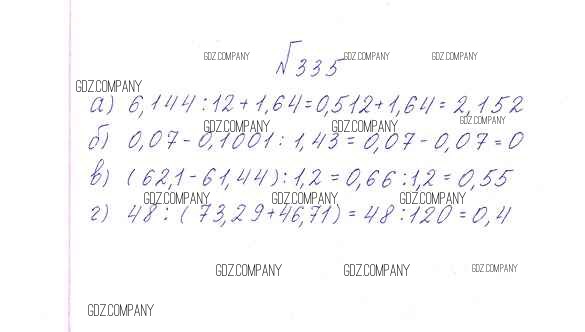 GDZ.COMPANY GDZ.COMPANY GDZ.COMPANY
№335
GDZ.COMPANY
а) 6,144:12+1,64=0,512+1,64=2,152
GDZ.COMPANY GDZ.COMPANY GDZ.COMPANY
б) 0,07-0,1001:1,43=0,07-0,07=0
в) (62,1-61,44):1,2=0,66:1,2=0,55
GDZ.COMPANY GDZ.COMPANY GDZ.COMPANY
г) 48:(73,29+46,71)=48:120=0,4
GDZ.COMPANY GDZ.COMPANY GDZ.COMPANY
GDZ.COMPANY